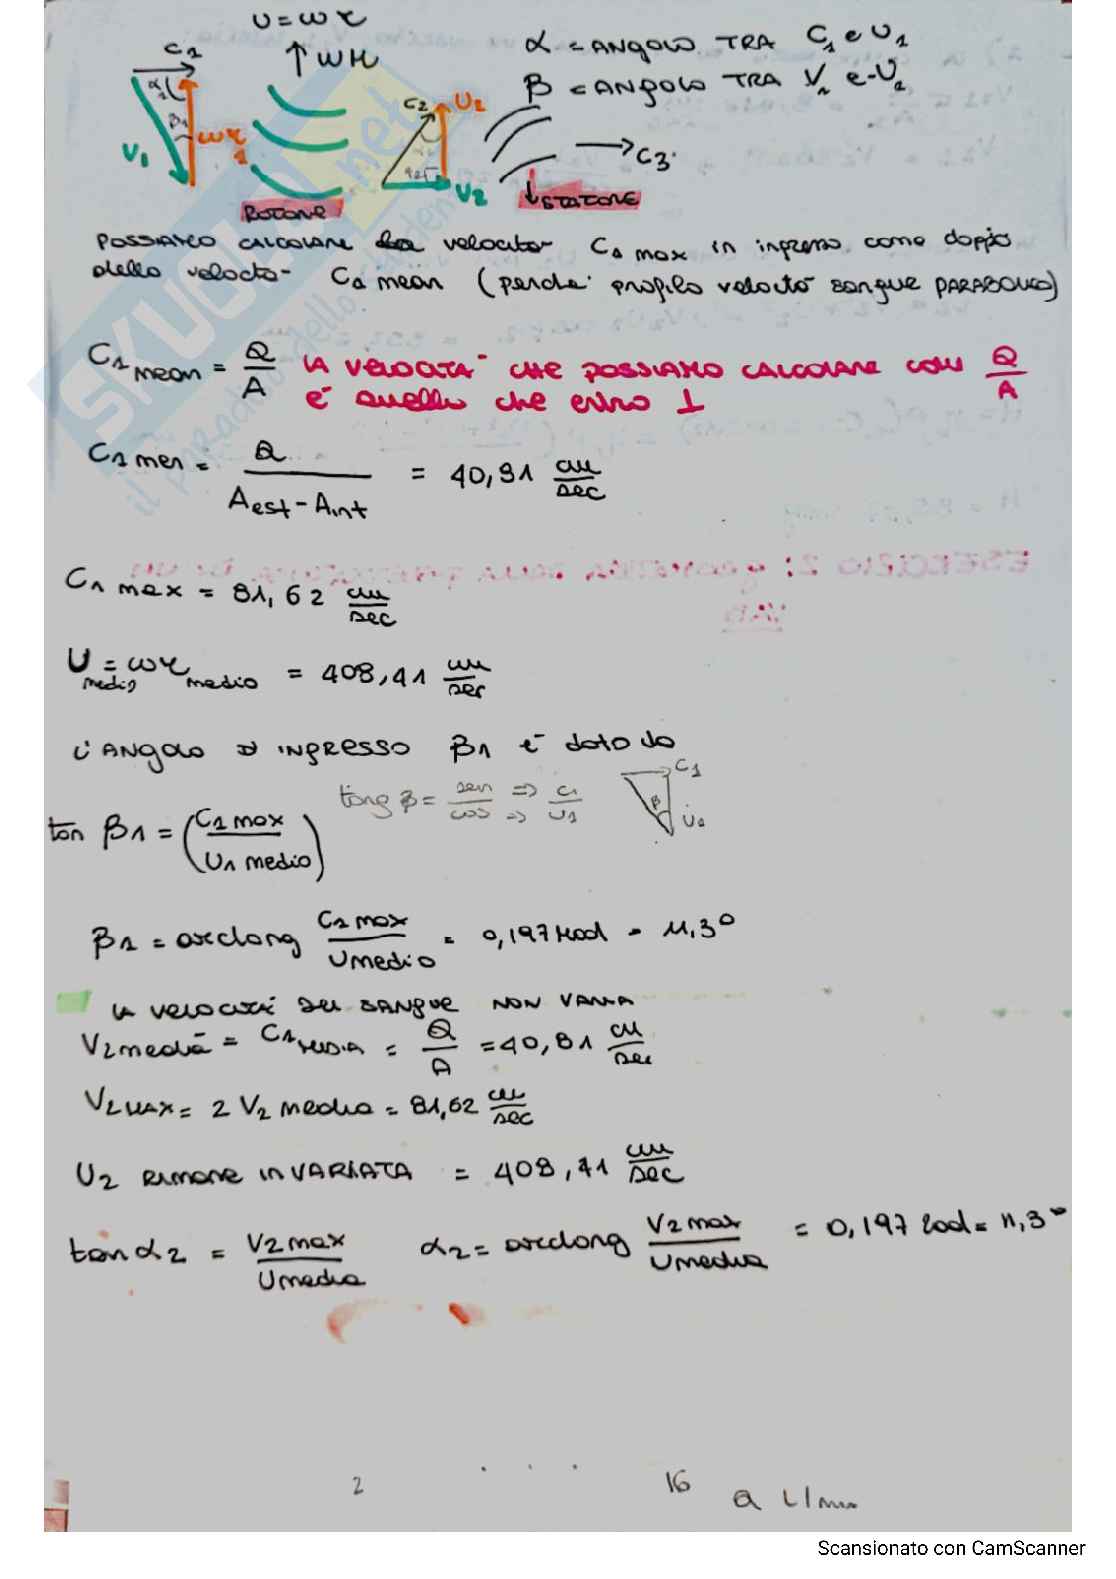 U = ωr
C1
↑ ωr
α = ANGOLO TRA C1 e U1
β = ANGOLO TRA V1 e -U1
α1
β1
V1
ωr
C2
U2
V2
→ C3
ROTORE
↓ STATORE
POSSIAMO CALCOLARE la velocità C1 max in ingresso come doppio
della velocità C1 mean (perché profilo velocità sangue PARABOLICO)
C1 mean = Q/A LA VELOCITÀ CHE POSSIAMO CALCOLARE COM Q/A
È quella che entra ⊥
C1 men = Q / (Aest - Aint) = 40,81 cm/sec
C1 max = 81,62 cm/sec
U medio = ωr medio = 408,41 cm/sec
L'ANGOLO DI INGRESSO β1 è dato da
tang β = sen/cos => C1/U1
C1
β
U1
tan β1 = (C1 max / U1 medio)
β1 = arctang C1 max / U medio = 0,197 rad = 11,3°
LA VELOCITÀ DEL SANGUE NON VARIA
V2 media = C1 MEDIA = Q/A = 40,81 cm/sec
V2 MAX = 2 V2 media = 81,62 cm/sec
U2 RIMANE INVARIATA = 408,41 cm/sec
tan α2 = V2 max / U media α2 = arctang V2 max / U media = 0,197 rad = 11,3°
2 16 Q L/min
Scansionato con CamScanner
SKUOLA.net
il paradiso dello studente